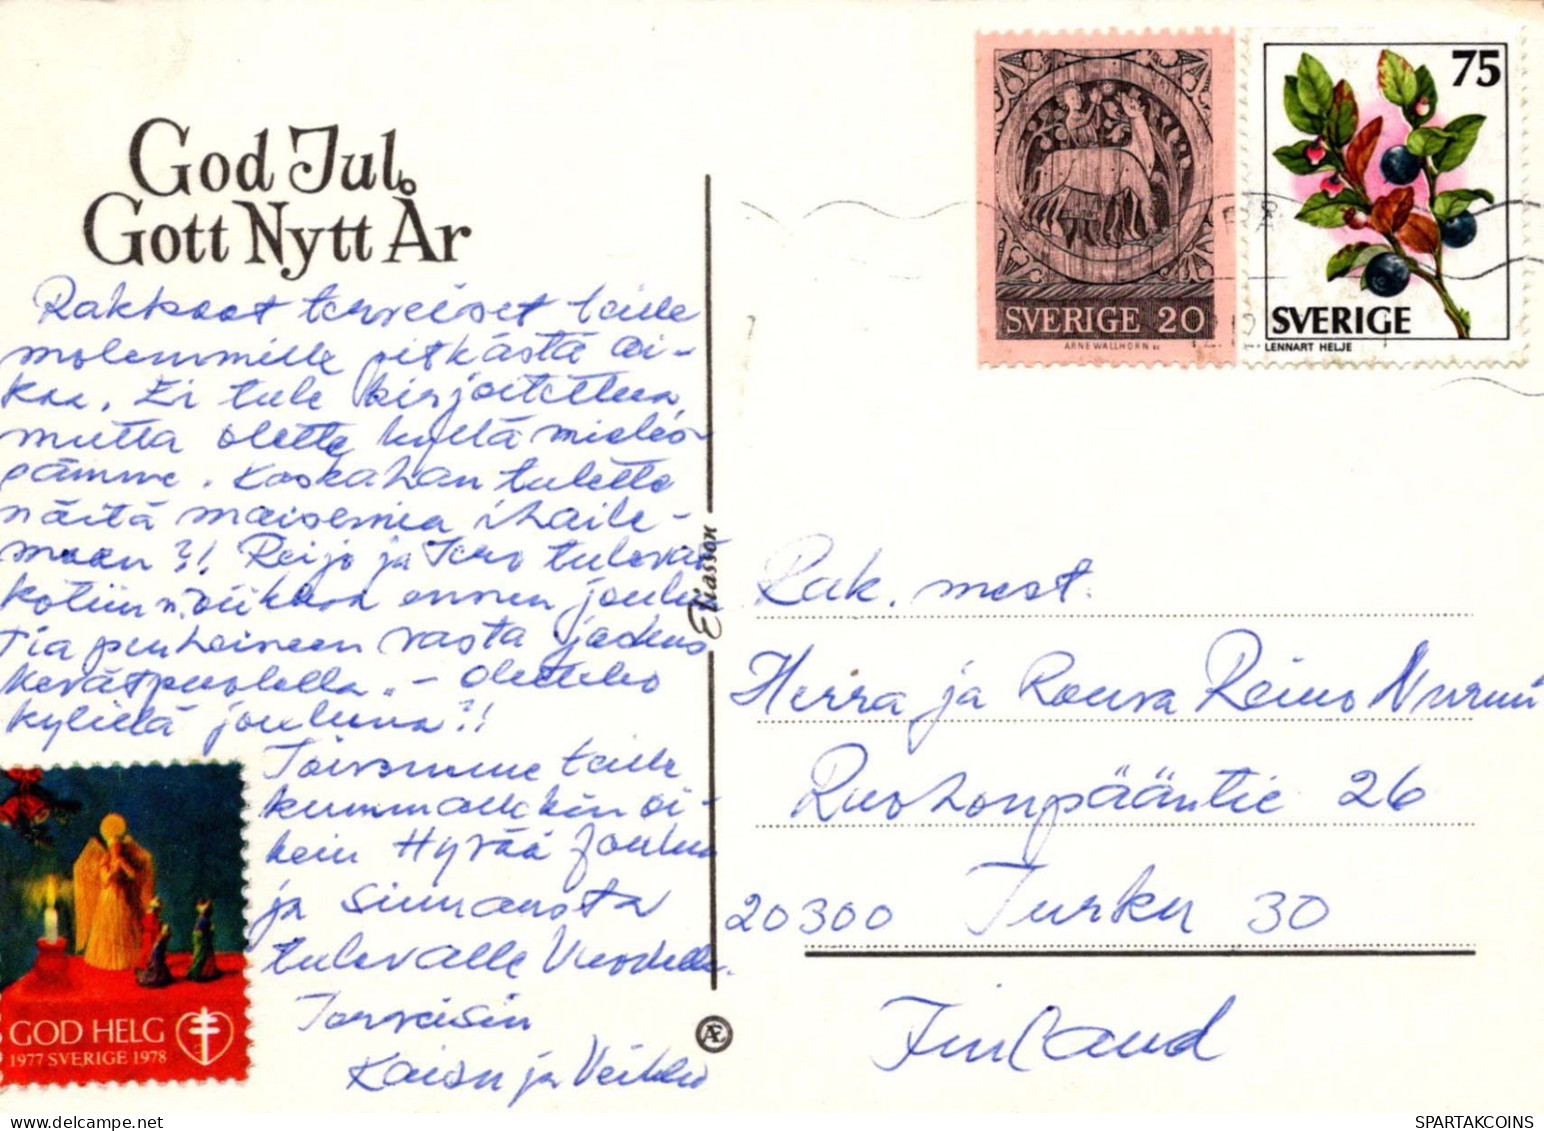 God Jul
Gott Nytt År
Rakkaat terveiset teille
molemmille pitkästä ai-
kaa. Ei tule kirjoitettua
mutta olette kyllä mieles-
sämme. Koskahan tulette
näitä maisemia ihaile-
maan?! Reijo ja Tero tulevat
kotiin n. viikkoa ennen joulu
Tia puheineen vasta joskus
kevätpuolella. - Oletteko
kylillä jouluna?!
Toivomme teille
kummallekin oi-
kein Hyvää Joulua
ja Siunausta
tulevalle Vuodelle.
Terveisin
Kaisu ja Veikko
GOD HELG
1977 SVERIGE 1978
Eliasson
Æ
SVERIGE 20
ARNE WALLHORN SC
75
SVERIGE
LENNART HELJE
Rak. mest.
Herra ja Rouva Reino Nurmi
Ruohonpääntie 26
20300 Turku 30
Finland
SPARTAKCOINS